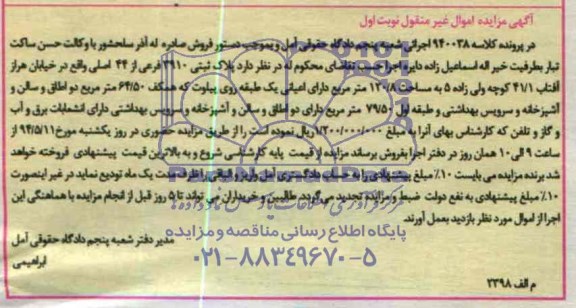 آگهی مزایده اموال غیر منقول نوبت اول
در پرونده کلاسه ۹۴۰۰۳۸ اجرائی شعبه پنجم دادگاه حقوقی آمل و بموجب دستور فروش صادره له آذر سلحشور با وکالت حسن ساکت
تبار بطرفیت خیر اله اسماعیل زاده دایره اجرا حسب تقاضای محکوم له در نظر دارد پلاک ثبتی ۳۹۱۰ فرعی از ۴۴ اصلی واقع در خیابان هراز
آفتاب ۴۱/۱ کوچه ولی زاده ۵ به مساحت ۱۲۰/۸ متر مربع دارای اعیانی یک طبقه روی پیلوت که همکف ۶۴/۵۰ متر مربع دو اطاق و سالن و
آشپزخانه و سرویس بهداشتی و طبقه اول ۷۹/۵۰ متر مربع دارای دو اطاق و سالن و آشپزخانه و سرویس بهداشتی دارای انشعابات برق و آب
و گاز و تلفن که کارشناس بهای آنرا به مبلغ ۱/۲۰۰/۰۰۰/۰۰۰ ریال نموده است را از طریق مزایده حضوری در روز یکشنبه مورخ ۹۴/۵/۱۱ از
ساعت ۹ الی ۱۰ همان روز در دفتر اجرا بفروش برساند مزایده از قیمت پایه کارشناسی شروع و به بالاترین قیمت پیشنهادی فروخته خواهد
شد برنده مزایده می بایست ۱۰٪ مبلغ پیشنهادی را به حساب دادگستری آمل واریز و الباقی را ظرف مدت یک ماه تودیع نماید در غیر اینصورت
۱۰٪ مبلغ پیشنهادی به نفع دولت ضبط و مزایده تجدید می گردد. طالبین و خریداران می توانند تا ۵ روز قبل از انجام مزایده با هماهنگی این
اجرا از اموال مورد نظر بازدید بعمل آورند.
پایگاه اطلاع رسانی مناقصه و مزایده
مدیر دفتر شعبه پنجم دادگاه حقوقی آمل
۰۲۱-۸۸۳۴۹۶۷۰-۵
ابراهیمی
م الف ۲۳۹۸